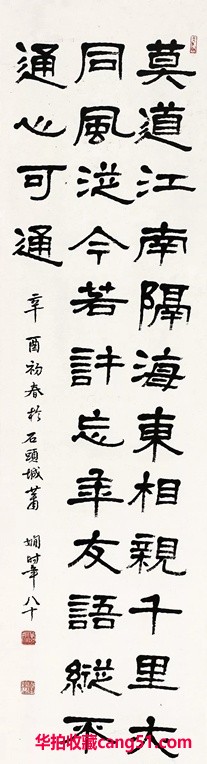 莫道江南隔海東相親千里大
同風從今若許忘年友語縱不
通心可通
辛酉初春於石頭城蕭嫻時年八十
华拍收藏cang51.com